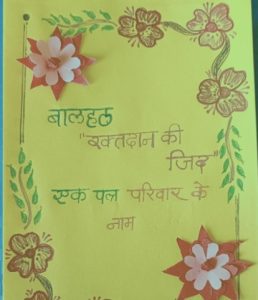 बालहल
"रक्तदान की
जिद
एक पल परिवार के
नाम